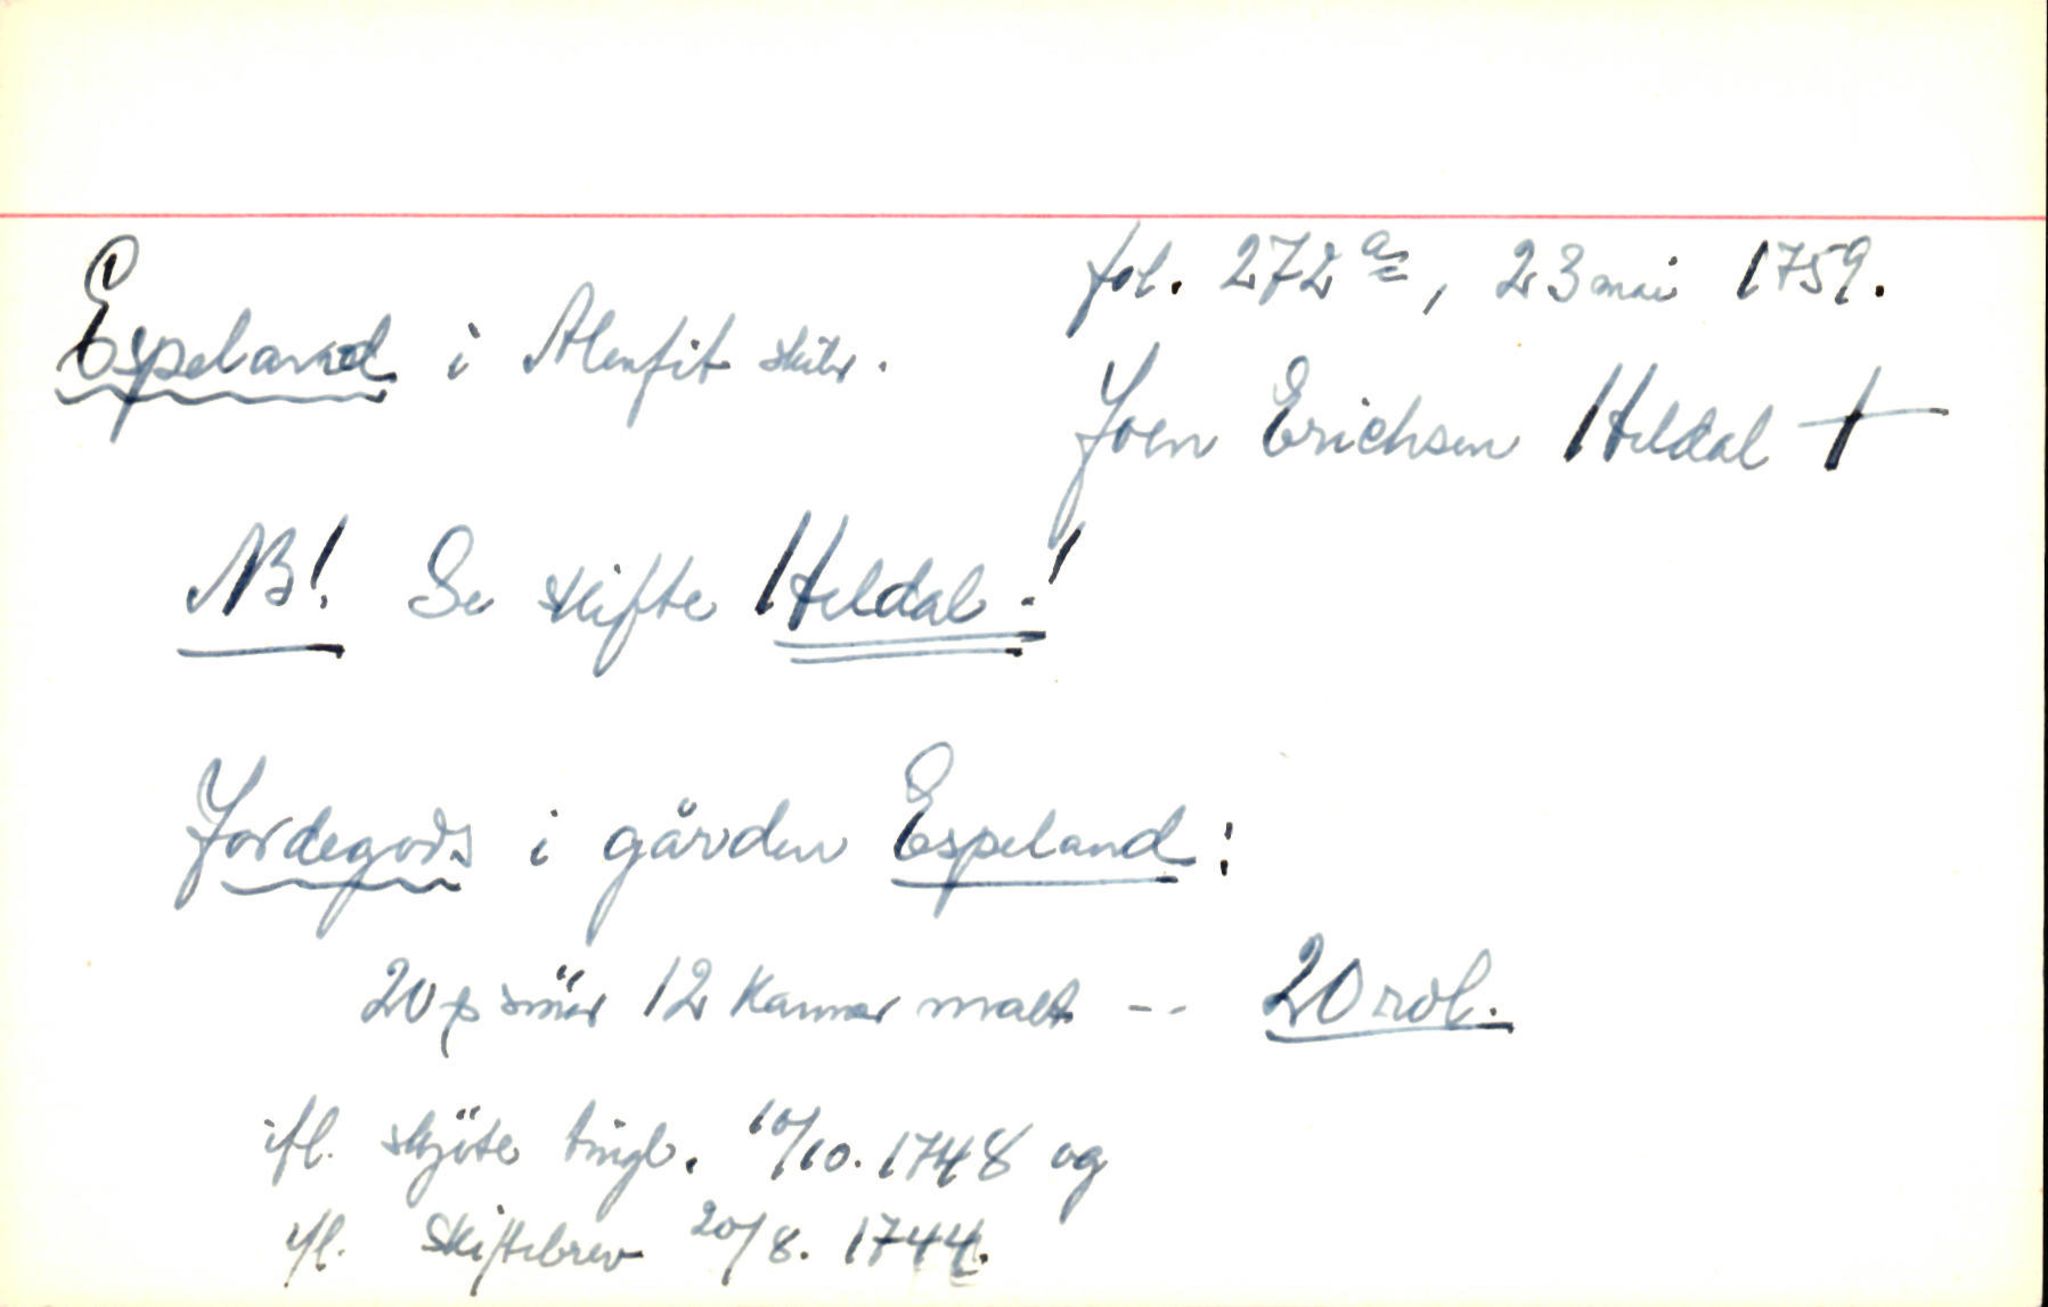 fol. 272 a, 23 mai 1759.
Espeland i Alenfit skibr.
Joen Erichsen Heldal †
NB! Se skifte Heldal!
Jordegods i gården Espeland:
20 smör 12 Kanner malt -- 20 rdl.
ifl. skjöte tingl. 10/10. 1748 og
ifl. Skiftebrev 20/8. 1744.